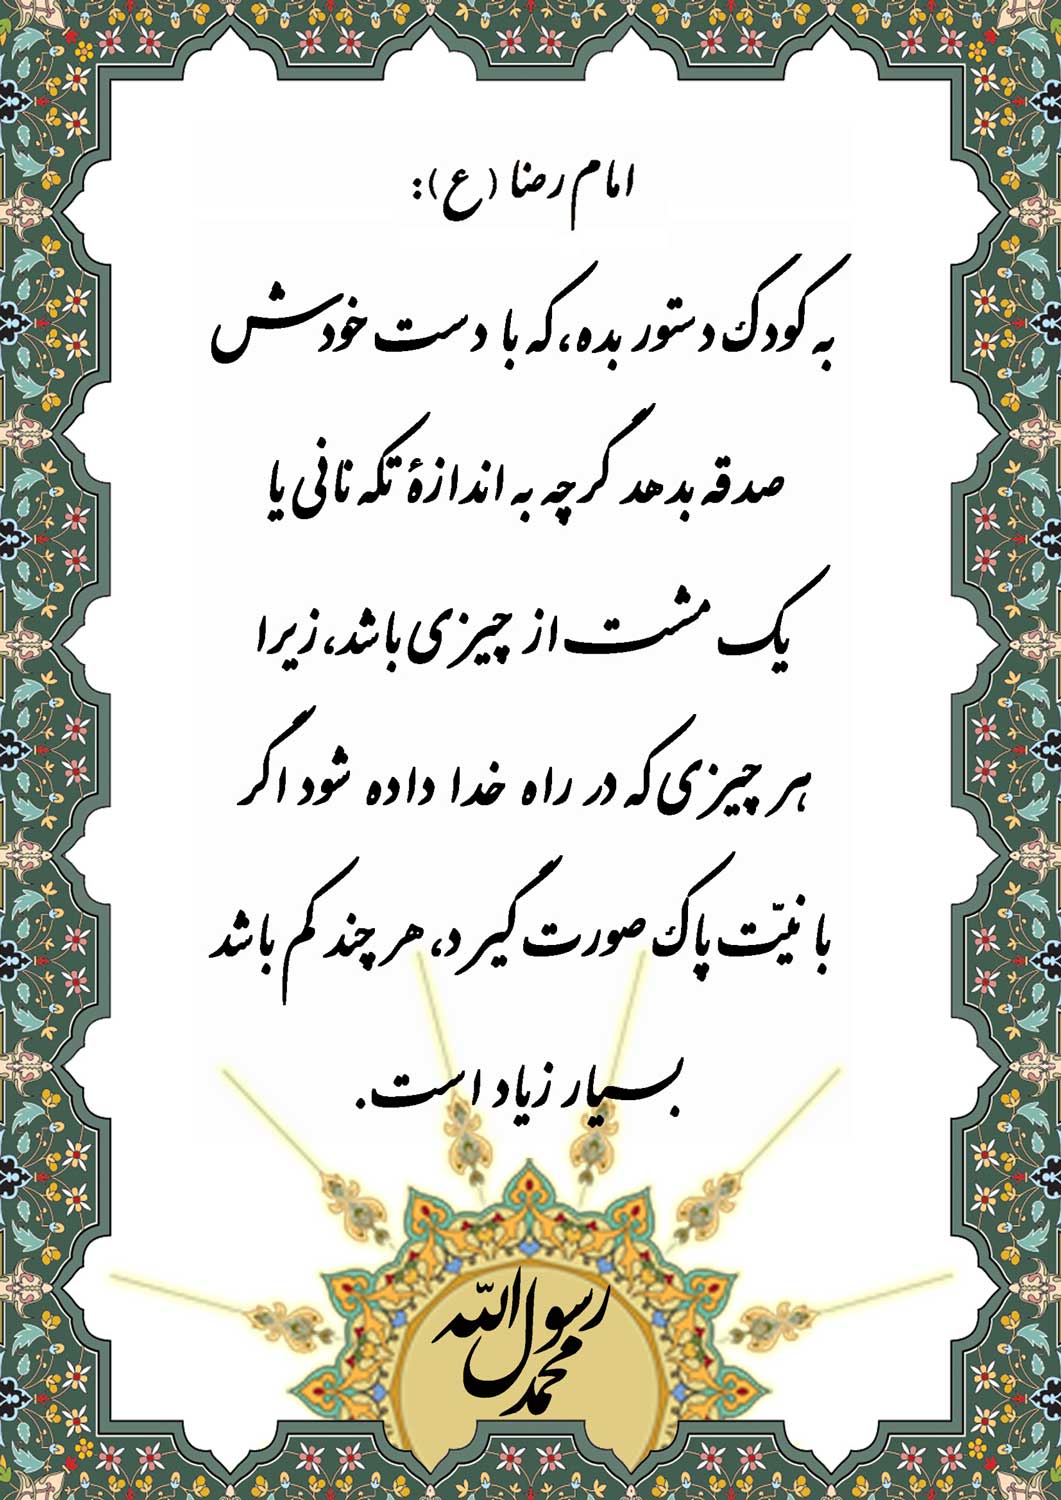 امام رضا (ع):
به کودک دستور بده، که با دست خودش
صدقه بدهد گرچه به اندازهٔ تکه نانی یا
یک مشت از چیزی باشد، زیرا
هر چیزی که در راه خدا داده شود اگر
با نیّت پاک صورت گیرد، هر چند کم باشد
بسیار زیاد است.
محمد رسول الله